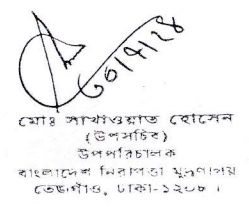 ৩০/৪/২৪
মোঃ সাখাওয়াত হোসেন
(উপসচিব)
উপপরিচালক
বাংলাদেশ নিরাপত্তা মুদ্রণালয়
তেজগাঁও, ঢাকা-১২০৮।